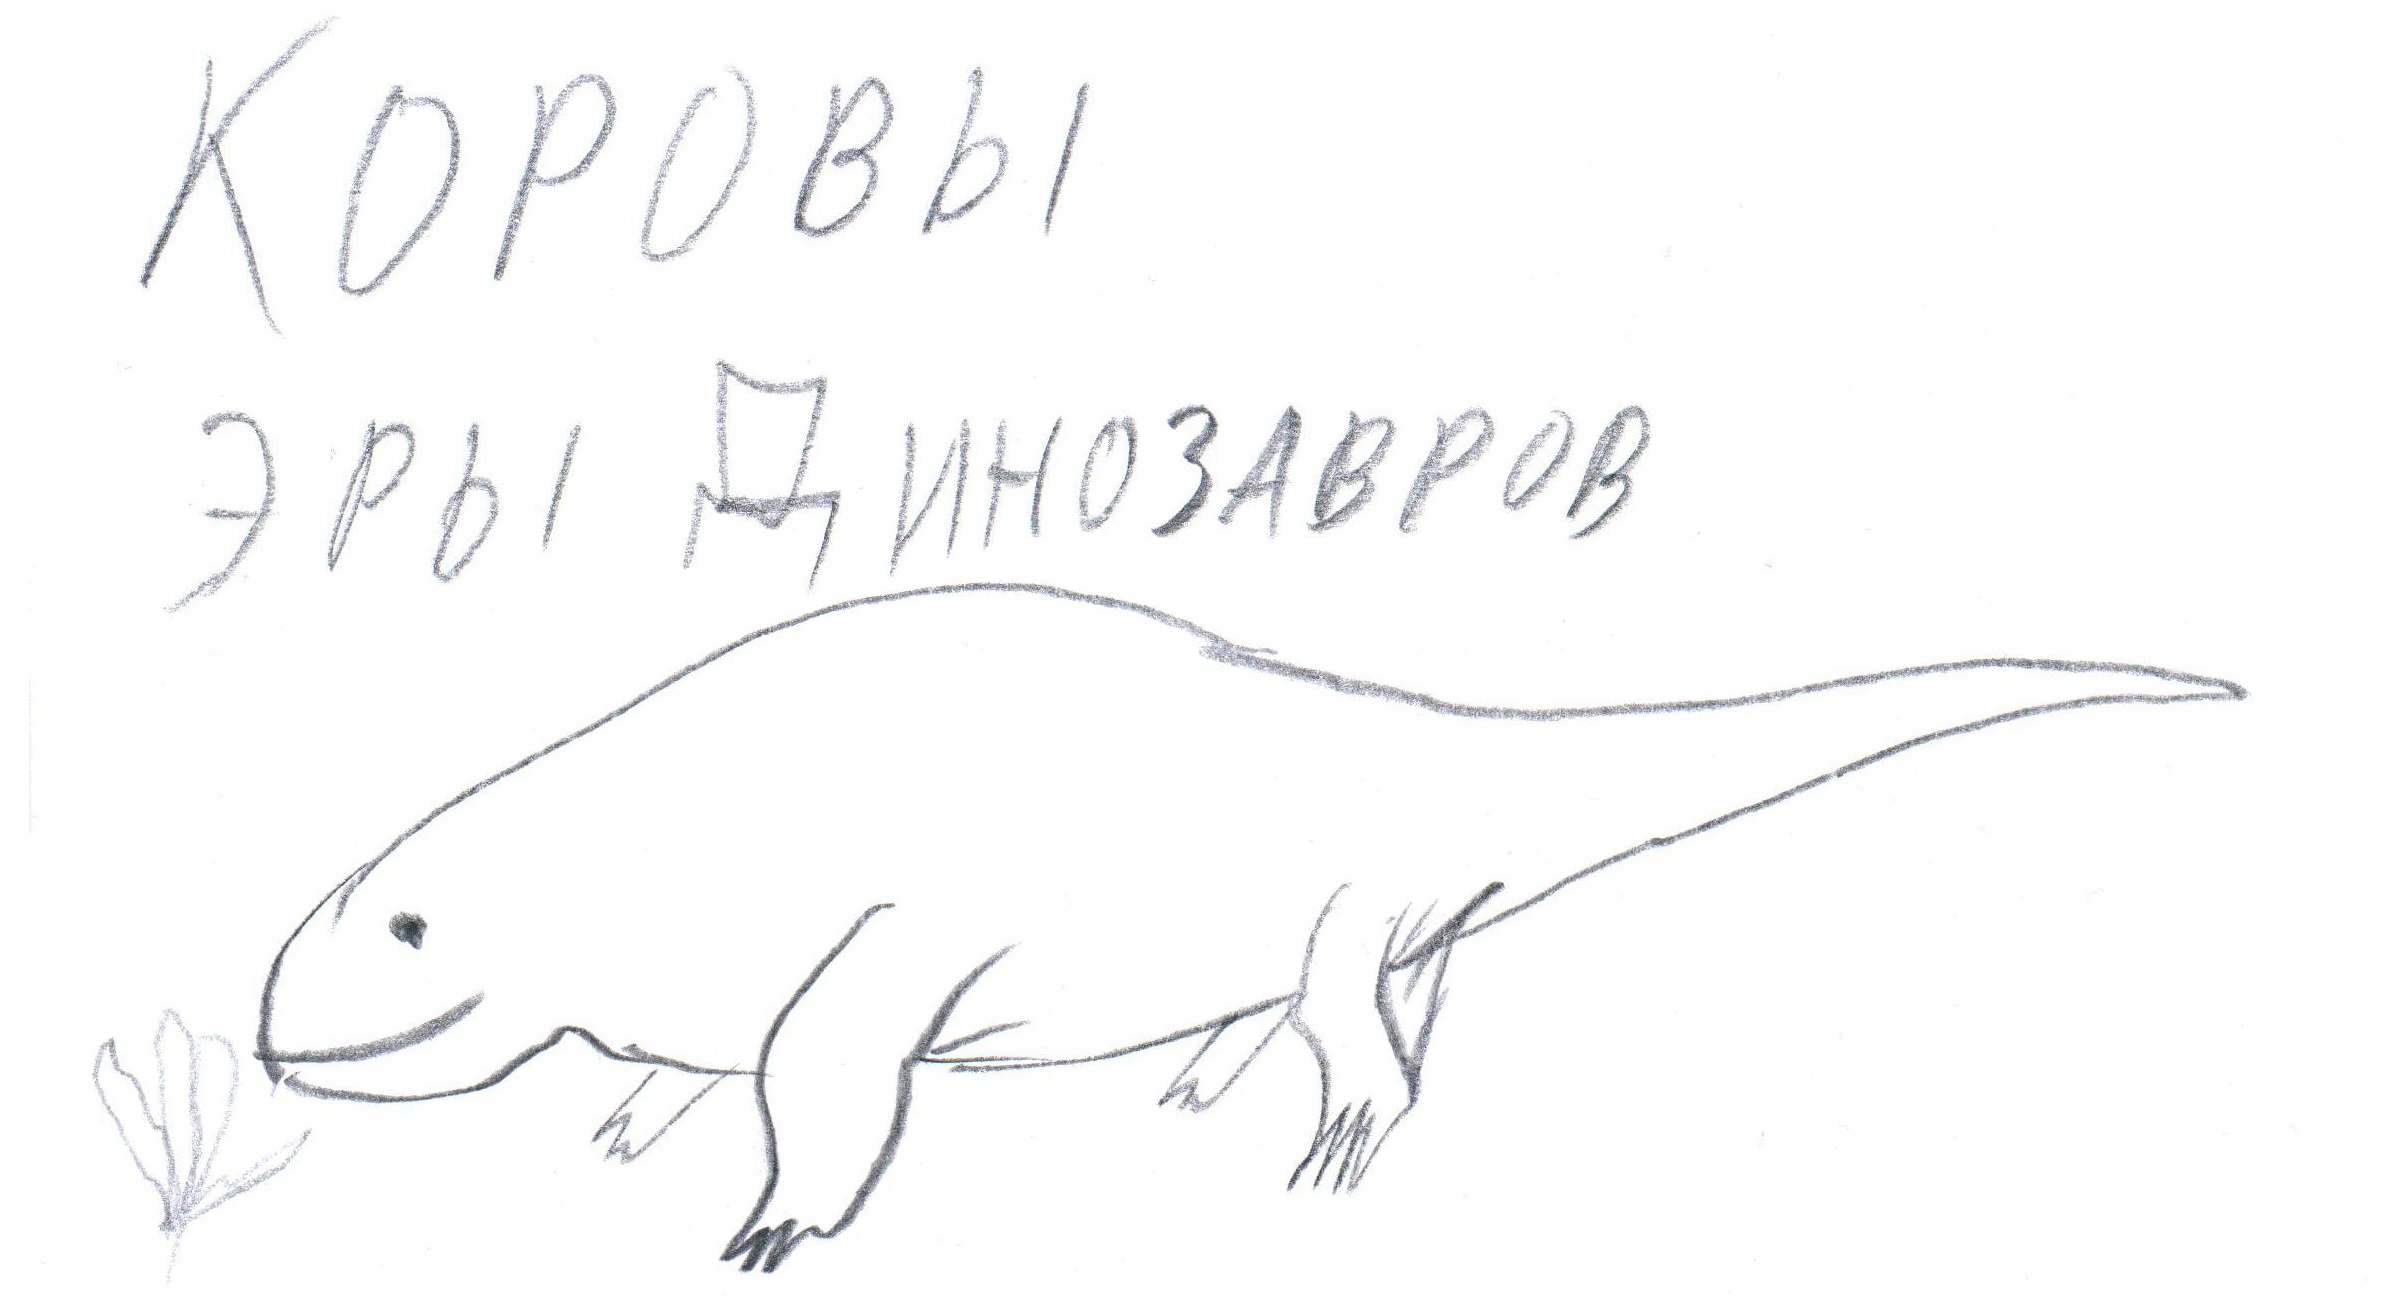 КОРОВЫ
ЭРЫ ДИНОЗАВРОВ